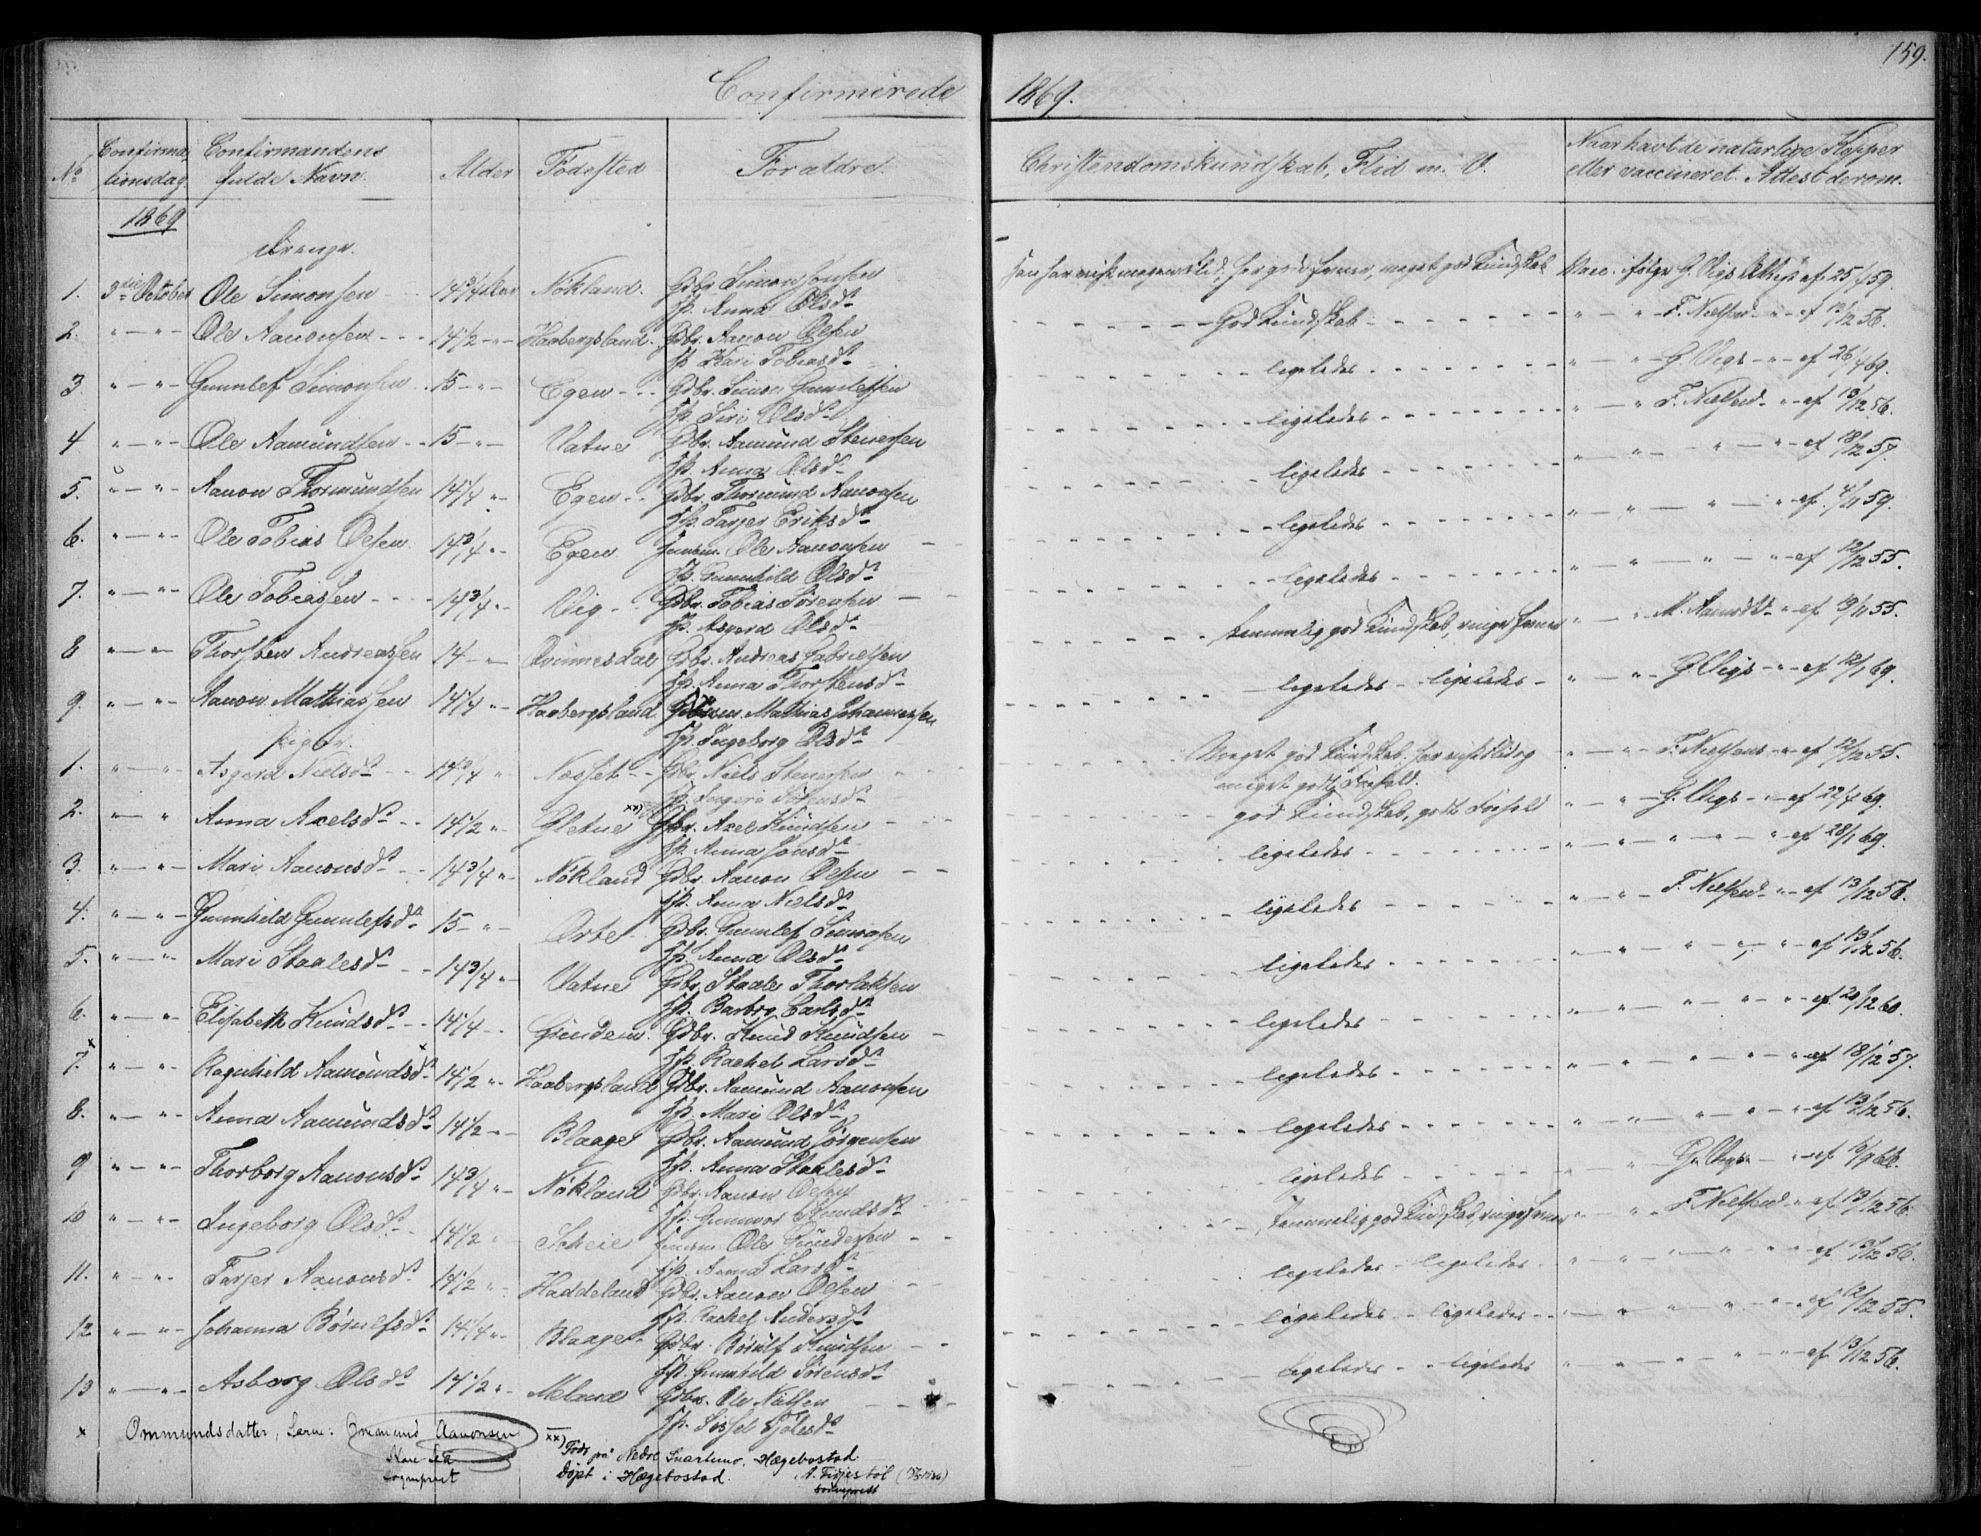 159.
Confirmerede 1869.
No Confirmationsdag. Confirmandens fulde Navn. Alder Fødested Forældre. Christendomskundskab, Flid m. V. Naar havt de naturlige Kopper eller vaccineret. Attest derom.
1869
Drenge.
1. 3die October Ole Simonsen 14 3/4 Aar Nökland. Gdbr. Simon
Hp. Anna Olsdr
Han har meget god Kundskab Vacc. ifølge G. Vigs Attest af 25/4 59.
2. " — " Ole Aanonsen 14 1/2 Haabergsland. Gdbr. Aanon Olsen
Hp. Kari Tobiasdr
God Kundskab " — " F. Nielsens " af 13/12 56.
3 " — " Gunnlef Simonsen 15 Egen Gdbr. Simon Gunnlefsen
Hp. Siri Olsdr
ligeledes " — " G. Vigs " af 26/4 69.
4 " — " Ole Aamundsen 15 Vatne Gdbr. Aamund Stenersen
Hp. Anna Olsdr
ligeledes " — " F. Nielsens " af 13/12 56.
5. " — " Aanon Thormundsen 14 1/4 Egen Gdbr. Thormund Aanonsen
Hp. Tarjer Eriksdr
ligeledes " — " af 18/12 57.
6. " — " Ole Tobias Olsen 14 3/4 Egen Ole Aanonsen
Hp. Gunnhild Olsdr
ligeledes " — " af 4/11 59.
7. " — " Ole Tobiassen 14 3/4 Vig Gdbr. Tobias Sørensen
Hp. Asgerd Olsdr
ligeledes " — " af 12/12 55.
8 " — " Thorsten Andreassen 14 Qvinnesdal Gdbr. Andreas Gabrielsen
Hp. Anna Thorstensdr
temmelig god Kundskab, ringe " — " af 13/11 55.
9. " — " Aanon Mathiassen 14 1/4 Haabergsland Mathias Johannessen
Hp. Ingeborg Olsdr
ligeledes ligeledes " — " G. Vigs " af 12/1 69.
Piger.
1. " — " Asgerd Nielsdr 14 3/4 Nesset Gdbr. Niels Stenersen
Hp. Ingeri Sörensdr
Meget god Kundskab, har vist Flid og
meget godt Forhold. " — " F. Nielsens " af 12/12 55.
2. " — " Anna Axelsdr 14 1/2 Gletne xx) Gdbr. Axel Knudsen
Hp. Anna Jonsdr
god Kundskab, godt Forhold " — " G. Vigs " af 27/4 69.
3. " — " Mari Aanonsdr 14 3/4 Nökland Gdbr. Aanon Olsen
Hp. Anna Nielsdr
ligeledes " — " af 28/1 69.
4. " — " Gunnhild Gunnlefsdr 15 Orte Gdbr. Gunnlef Simonsen
Hp. Anna Olsdr
ligeledes " — " F. Nielsens " af 13/12 56.
5. " — " Mari Staalesdr 14 3/4 Vatne Gdbr. Staale Thorlaksen
Hp. Barbro Carlsdr
ligeledes " — " af 13/12 56.
6. " — " Elisabeth Knudsdr 14 1/4 Gdbr. Knud Knudsen
Hp. Rachel Larsdr
ligeledes " — " af 20/12 60.
7. x " — " Ragnhild Aamundsdr x 14 1/2 Haabergsland Gdbr. Aamund Aanonsen
Hp. Mari Olsdr
ligeledes " — " af 18/12 57.
8. " — " Anna Aamundsdr 14 1/2 Blaage Gdbr. Aamund Jørgensen
Hp. Anna Staalesdr
ligeledes " — " af 13/12 56.
9 " — " Thorborg Aanonsdr 14 3/4 Nökland Gdbr. Aanon Olsen
Hp. Gunnvor Knudsdr
ligeledes " G. Vigs " af 9 66.
10 " — " Ingeborg Olsdr 14 1/2 Scheie Ole Gundersen
Hp. Anna Larsdr
Temmelig god Kundskab, ringe " — " F. Nielsens " af 13/12 56.
11. " — " Tarjer Aanonsdr 14 1/2 Haddeland Gdbr. Aanon Olsen
Hp. Rachel Andersdr
ligeledes ligeledes " — " af 13/12 56.
12 " — " Johanna Börulfsdr 14 1/4 Blaage Gdbr. Börulf Knudsen
Hp. Gunnhild Sörensdr
ligeledes ligeledes " — " af 12/12 55.
13 " — " Asborg Olsdr 14 1/2 Meland Gdbr. Ole Nilsen
Hp. Sissel
ligeledes ligeledes " — " af 13/12 56.
x Ommundsdatter, Aanonsen
sogneprest
xx) Født på Nedre Snartemo, Hægebostad.
Døpt i Hægebostad. A. Tirjestöl
sogneprest